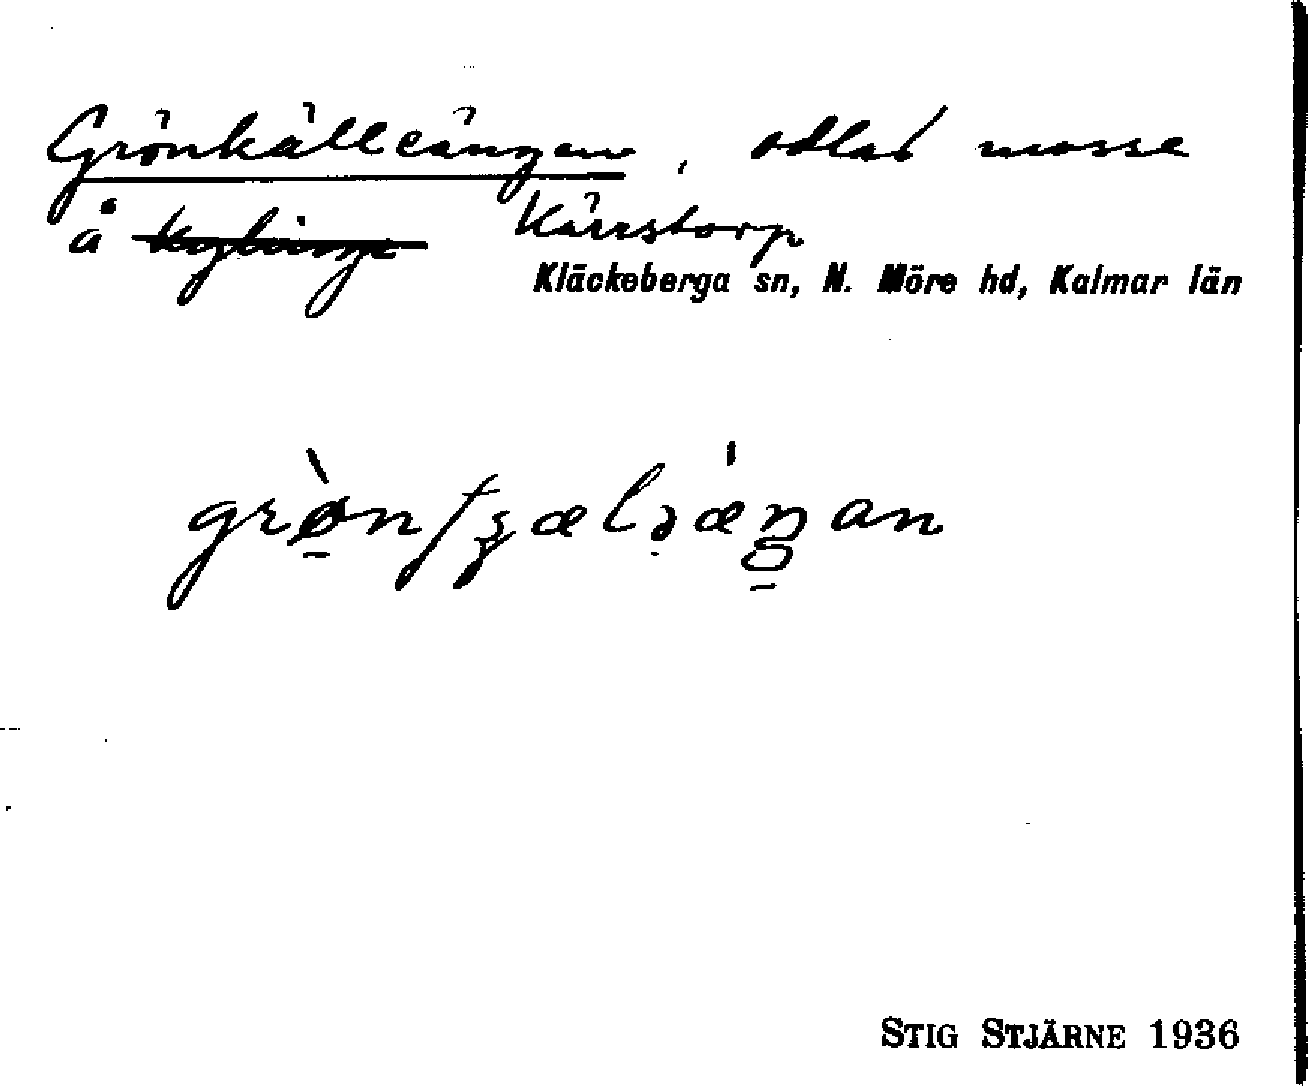 Grönkälleängen, odlad mosse
å Kärrstorp
Kläckeberga sn, N. Möre hd, Kalmar län
STIG STJÄRNE 1936